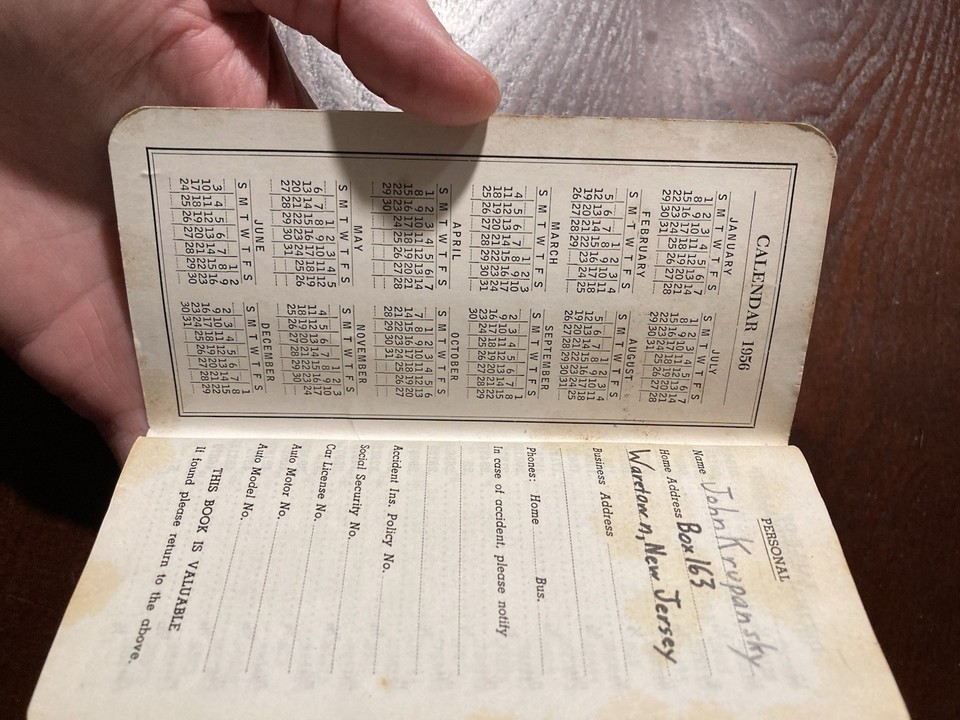 CALENDAR 1956
JANUARY
S M T W T F S
1 2 3 4 5 6 7
8 9 10 11 12 13 14
15 16 17 18 19 20 21
22 23 24 25 26 27 28
29 30 31
FEBRUARY
S M T W T F S
1 2 3 4
5 6 7 8 9 10 11
12 13 14 15 16 17 18
19 20 21 22 23 24 25
26 27 28 29
MARCH
S M T W T F S
1 2 3
4 5 6 7 8 9 10
11 12 13 14 15 16 17
18 19 20 21 22 23 24
25 26 27 28 29 30 31
APRIL
S M T W T F S
1 2 3 4 5 6 7
8 9 10 11 12 13 14
15 16 17 18 19 20 21
22 23 24 25 26 27 28
29 30
MAY
S M T W T F S
1 2 3 4 5
6 7 8 9 10 11 12
13 14 15 16 17 18 19
20 21 22 23 24 25 26
27 28 29 30 31
JUNE
S M T W T F S
1 2
3 4 5 6 7 8 9
10 11 12 13 14 15 16
17 18 19 20 21 22 23
24 25 26 27 28 29 30
JULY
S M T W T F S
1 2 3 4 5 6 7
8 9 10 11 12 13 14
15 16 17 18 19 20 21
22 23 24 25 26 27 28
29 30 31
AUGUST
S M T W T F S
1 2 3 4
5 6 7 8 9 10 11
12 13 14 15 16 17 18
19 20 21 22 23 24 25
26 27 28 29 30 31
SEPTEMBER
S M T W T F S
1
2 3 4 5 6 7 8
9 10 11 12 13 14 15
16 17 18 19 20 21 22
23 24 25 26 27 28 29
30
OCTOBER
S M T W T F S
1 2 3 4 5 6
7 8 9 10 11 12 13
14 15 16 17 18 19 20
21 22 23 24 25 26 27
28 29 30 31
NOVEMBER
S M T W T F S
1 2 3
4 5 6 7 8 9 10
11 12 13 14 15 16 17
18 19 20 21 22 23 24
25 26 27 28 29 30
DECEMBER
S M T W T F S
1
2 3 4 5 6 7 8
9 10 11 12 13 14 15
16 17 18 19 20 21 22
23 24 25 26 27 28 29
30 31
PERSONAL
Name John Krupansky
Home Address Box 163
Waretown, New Jersey
Business Address
Phones: Home Bus.
In case of accident, please notify
Accident Ins. Policy No.
Social Security No.
Car License No.
Auto Motor No.
Auto Model No.
THIS BOOK IS VALUABLE
If found please return to the above.